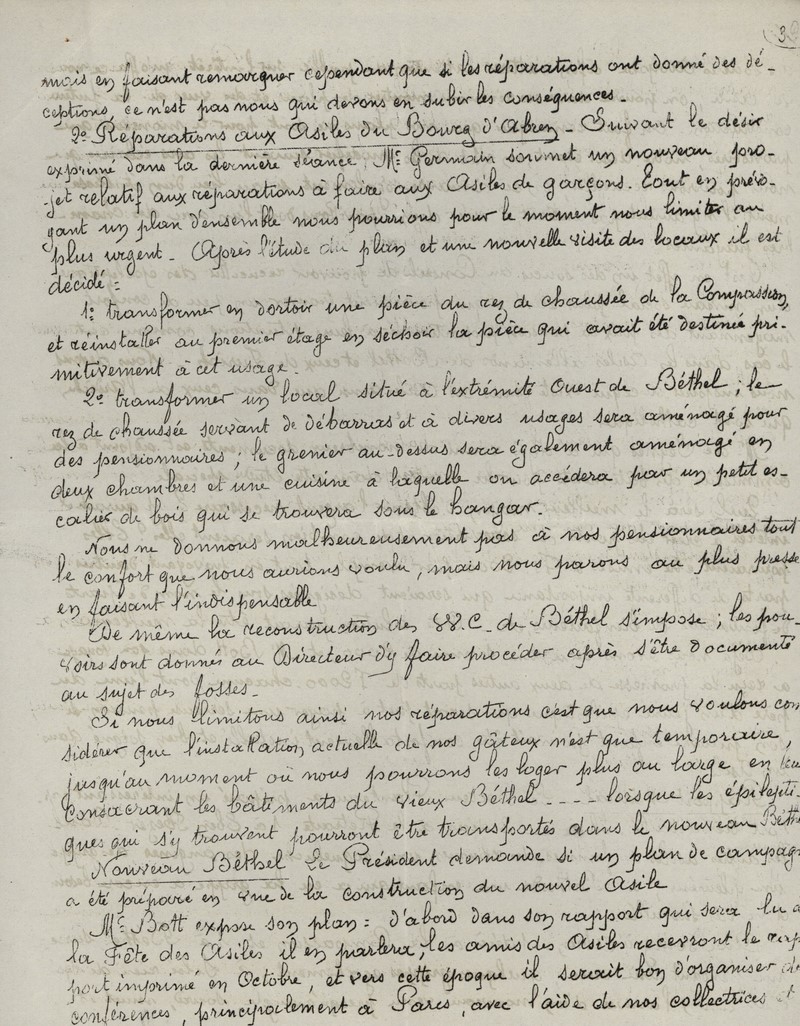 3
mais en faisant remarquer cependant que si les réparations ont donné des dé-
ceptions, ce n'est pas nous qui devons en subir les conséquences.
2º Réparations aux Asiles du Bourg d'Abren - Suivant le désir
exprimé dans la dernière séance, Mr Germain soumet un nouveau pro-
jet relatif aux réparations à faire aux Asiles de garçons. Tout en prévo-
yant un plan d'ensemble nous pourrions pour le moment nous limiter au
plus urgent - Après l'étude du plan et une nouvelle visite des locaux il est
décidé :
1º transformer en dortoir une pièce du rez de chaussée de la Compassion,
et réinstaller au premier étage en séchoir la pièce qui avait été destinée pri-
mitivement à cet usage.
2º transformer un local situé à l'extrémité Ouest de Béthel ; le
rez de chaussée servant de débarras et à divers usages sera aménagé pour
des pensionnaires ; le grenier au-dessus sera également aménagé en
deux chambres et une cuisine à laquelle on accédera par un petit es-
calier de bois qui se trouvera sous le hangar.
Nous ne donnons malheureusement pas à nos pensionnaires tout
le confort que nous aurions voulu, mais nous parons au plus pressé
en faisant l'indispensable
De même la reconstruction des W.C. de Béthel s'impose ; les pou-
voirs sont donnés au Directeur d'y faire procéder après s'être documenté
au sujet des fosses -
Si nous limitons ainsi nos réparations c'est que nous voulons con
sidérer que l'installation actuelle de nos gâteux n'est que temporaire,
jusqu'au moment où nous pourrons les loger plus au large en leur
consacrant les bâtiments du vieux Béthel - - - - lorsque les épilepti-
ques qui s'y trouvent pourront être transportés dans le nouveau Béthe
Nouveau Béthel Le Président demande si un plan de campag
a été préparé en vue de la construction du nouvel Asile
Mr Bott expose son plan : d'abord dans son rapport qui sera lu à
la Fête des Asiles il en parlera, les amis des Asiles recevront le rap
port imprimé en Octobre, et vers cette époque il serait bon d'organiser de
conférences, principalement à Paris, avec l'aide de nos collectrices et